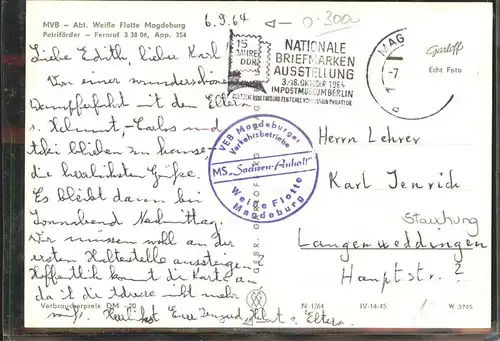 MVB – Abt. Weiße Flotte Magdeburg
Petriförder – Fernruf 3 38 06, App. 354
6.9.64
0-3000
Liebe Edith, lieber Karl!
Von einer wunderschönen
Dampferfahrt mit den Eltern
Helmut,
bleiben zu hause
die herzlichsten Grüße.
Es bleibt dann bei
Sonnabend Nachmittag.
Wir müssen wohl an der
ersten Haltestelle aussteigen.
Hoffentlich kommt die Karte an,
da ich die Adresse nicht mehr
weiß. Herzlichst Eure u. Eltern
15
JAHRE
DDR
NATIONALE
BRIEFMARKEN
AUSSTELLUNG
3.-18. OKTOBER 1964
IM POSTMUSEUM BERLIN
DEUTSCHER KULTURBUND ZENTRALE KOMMISSION PHILATELIE
MAG
-7
c
Garloff
Echt Foto
VEB Magdeburger
Verkehrsbetriebe
MS „Sachsen-Anhalt"
Weiße Flotte
Magdeburg
Herrn Lehrer
Karl Jenrich
Stauchung
Langenweddingen
Hauptstr. ?
Verbraucherpreis DM
N 1/64
IV-14-45
W 3765